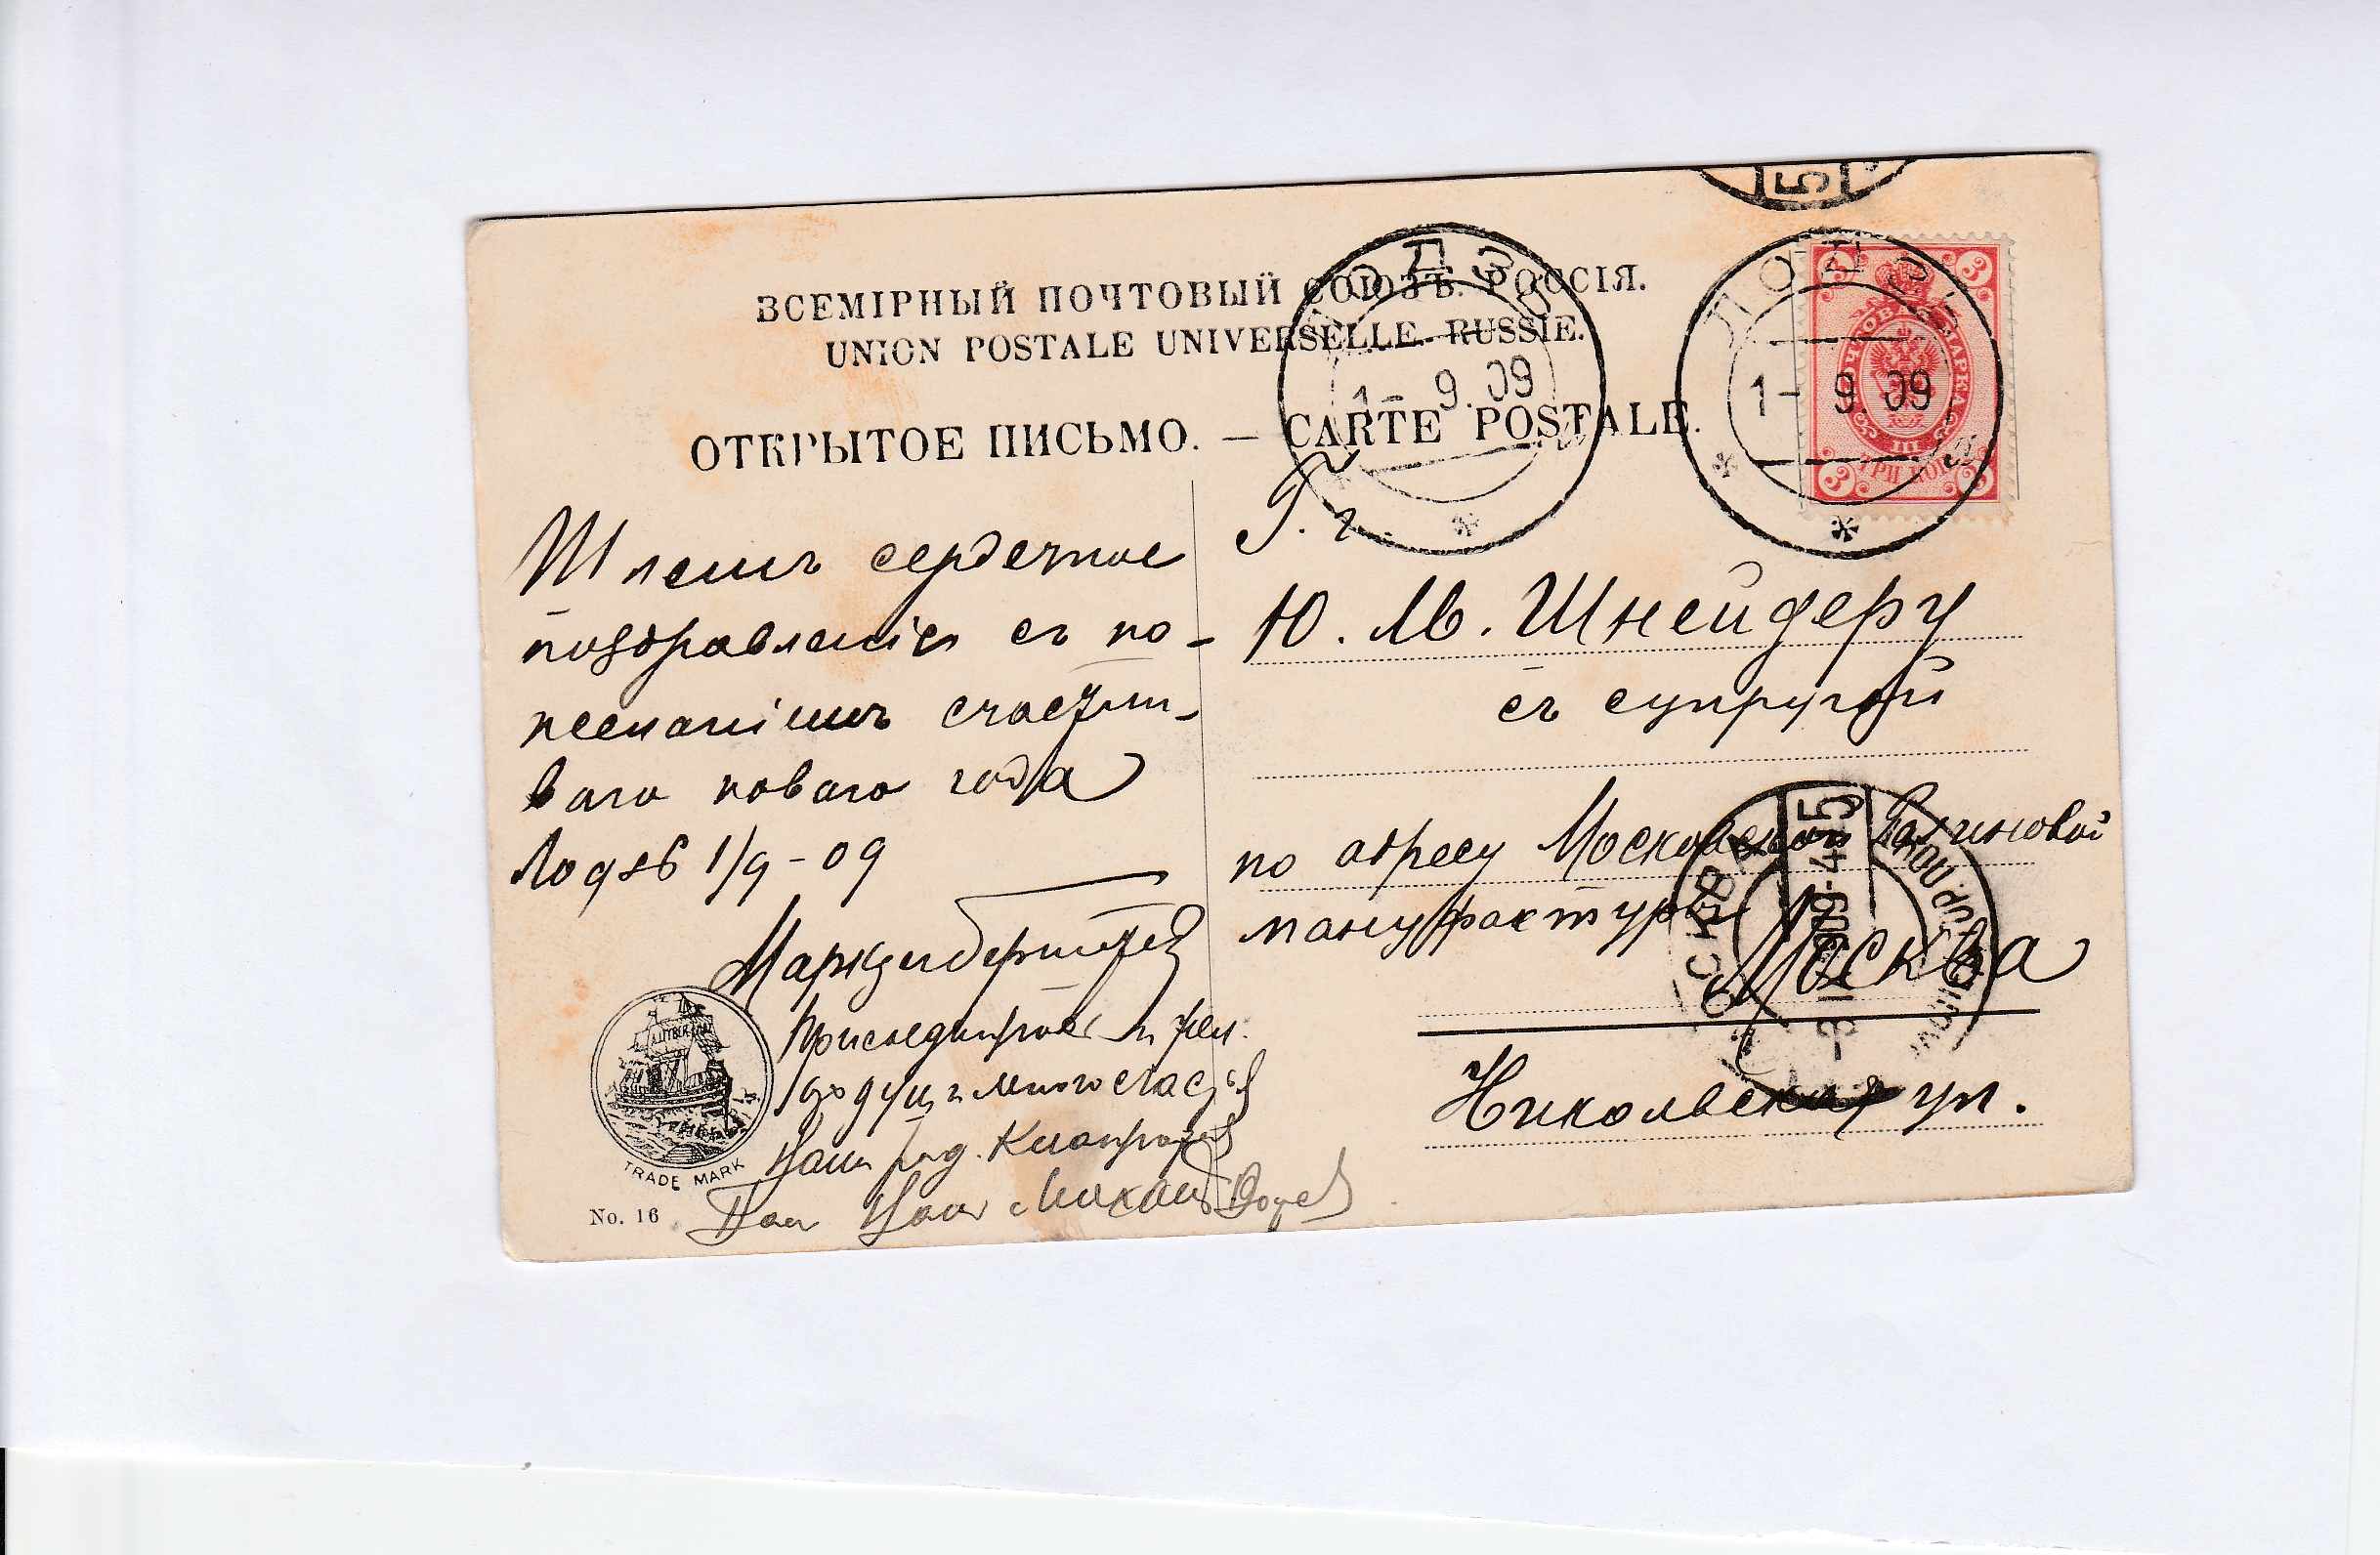 ВСЕМІРНЫЙ ПОЧТОВЫЙ СОЮЗЪ. РОССІЯ.
UNION POSTALE UNIVERSELLE. RUSSIE.
ОТКРЫТОЕ ПИСЬМО. — CARTE POSTALE.
ЛОДЗЬ
1- 9.09
ЛОДЗЬ
1- 9.09
ПОЧТОВАЯ МАРКА
ТРИ КОП
3
3
3
3
5
Шлемъ сердечное
поздравленіе съ по-
желаніемъ счастли-
ваго новаго года
Лодзь 1/9-09
Г. г.
Ю. М. Шнейдеру
съ супругой
по адресу Московской
мануфактуры
Москва
Никольская ул.
МОСКВА
-3 IX 909-4
5
много счастья
TRADE MARK
No. 16